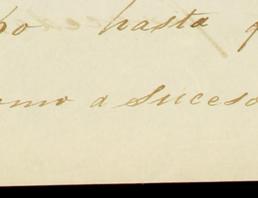 po hasta
omo a suceso